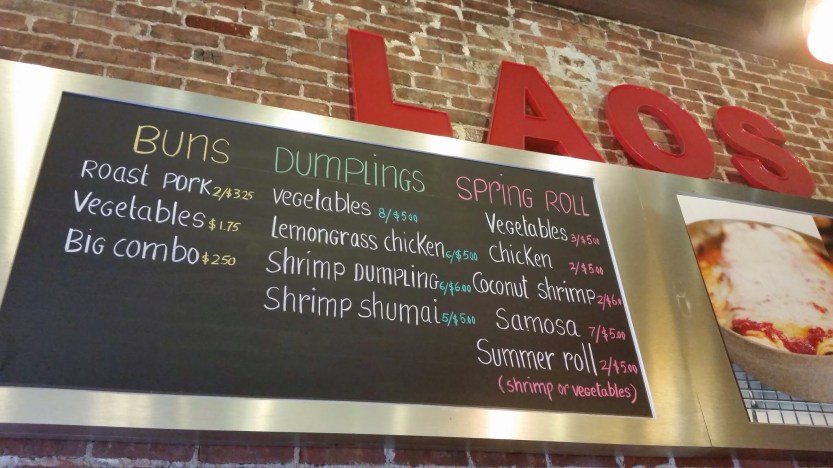 LAOS
BUNS
Roast Pork 2/$3.25
Vegetables $1.75
Big combo $2.50
DUMPLINGS
Vegetables 8/$5.00
Lemongrass chicken 6/$5.00
Shrimp DUMPLING 6/$6.00
Shrimp shumai 5/$5.00
SPRING ROLL
Vegetables 3/$5.00
chicken 2/$5.00
Coconut shrimp 2/$6.0
Samosa 7/$5.00
Summer roll 2/$5.00
(shrimp or vegetables)